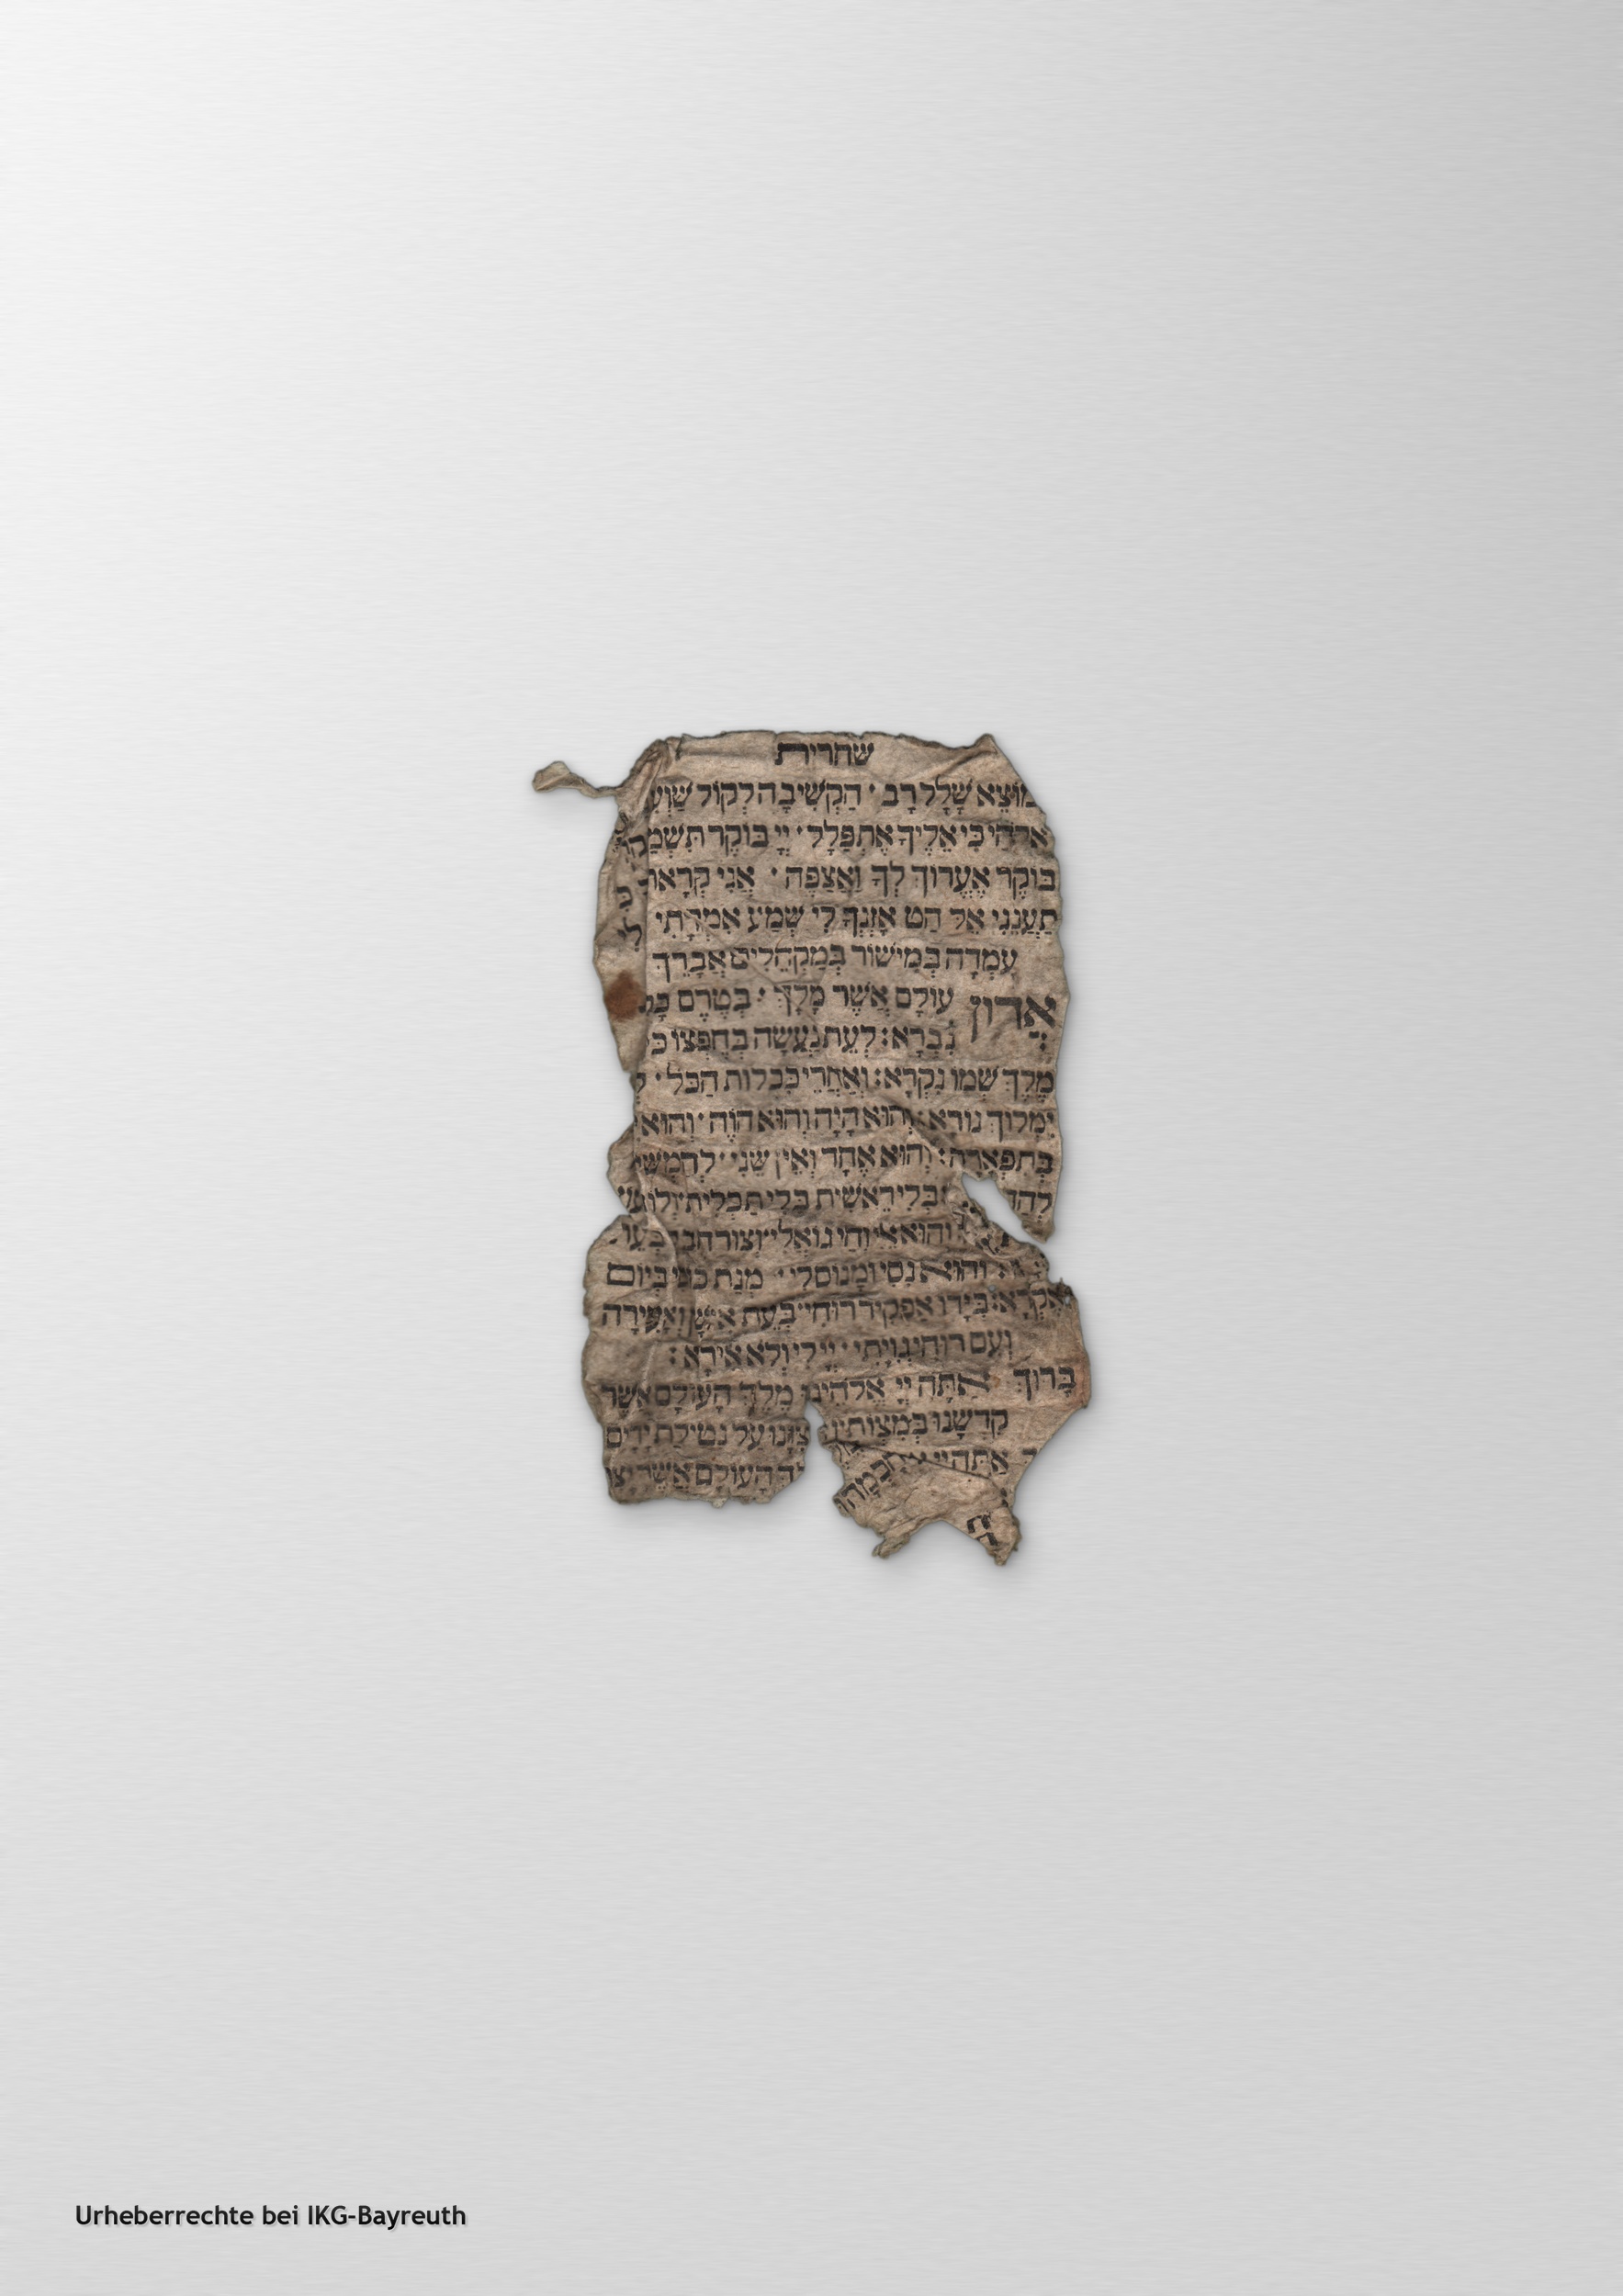 שחרית
מוֹצֵא שָׁלָל רָב · הַקְשִׁיבָה לְקוֹל שַׁוְעִ
אֱלֹהַי כִּי אֵלֶיךָ אֶתְפַּלָל · יְיָ בּוֹקֶר תִּשְׁמַע
בּוֹקֶר אֶעֱרוֹךְ לְךָ וַאֲצַפֶּה · אֲנִי קְרָאתִי
תַעֲנֵנִי אֵל הַט אָזְנְךָ לִי שְׁמַע אִמְרָתִי
עָמְדָה בְּמִישׁוֹר בְּמַקְהֵלִים אֲבָרֵךְ
אֲדוֹן עוֹלָם אֲשֶׁר מָלָךְ · בְּטֶרֶם כָּל
נִבְרָא: לְעֵת נַעֲשָׂה בְחֶפְצוֹ כֹּ
מֶלֶךְ שְׁמוֹ נִקְרָא: וְאַחֲרֵי כִּכְלוֹת הַכֹּל ·
יִמְלוֹךְ נוֹרָא: וְהוּא הָיָה וְהוּא הֹוֶה · וְהוּא
בְּתִפְאָרָה: וְהוּא אֶחָד וְאֵין שֵׁנִי · לְהַמְשִׁי
לְהַ בְּלִי רֵאשִׁית בְּלִי תַכְלִית וְלוֹ
וְהוּא אֵלִי וְחַי גּוֹאֲלִי וְצוּר חֶבְלִי בְּעֵ
וְהוּא נִסִּי וּמָנוֹס לִי · מְנָת כּוֹסִי בְּיוֹם
אֶקְרָא: בְּיָדוֹ אַפְקִיד רוּחִי בְּעֵת אִישַׁן וְאָעִירָה
וְעִם רוּחִי גְּוִיָּתִי · יְיָ לִי וְלֹא אִירָא:
בָּרוּךְ אַתָּה יְיָ אֱלֹהֵינוּ מֶלֶךְ הָעוֹלָם אֲשֶׁר
קִדְּשָׁנוּ בְּמִצְוֹתָיו צִוָּנוּ עַל נְטִילַת יָדַיִם
אַתָּה יְיָ הָעוֹלָם אֲשֶׁר יָצַ
Urheberrechte bei IKG-Bayreuth